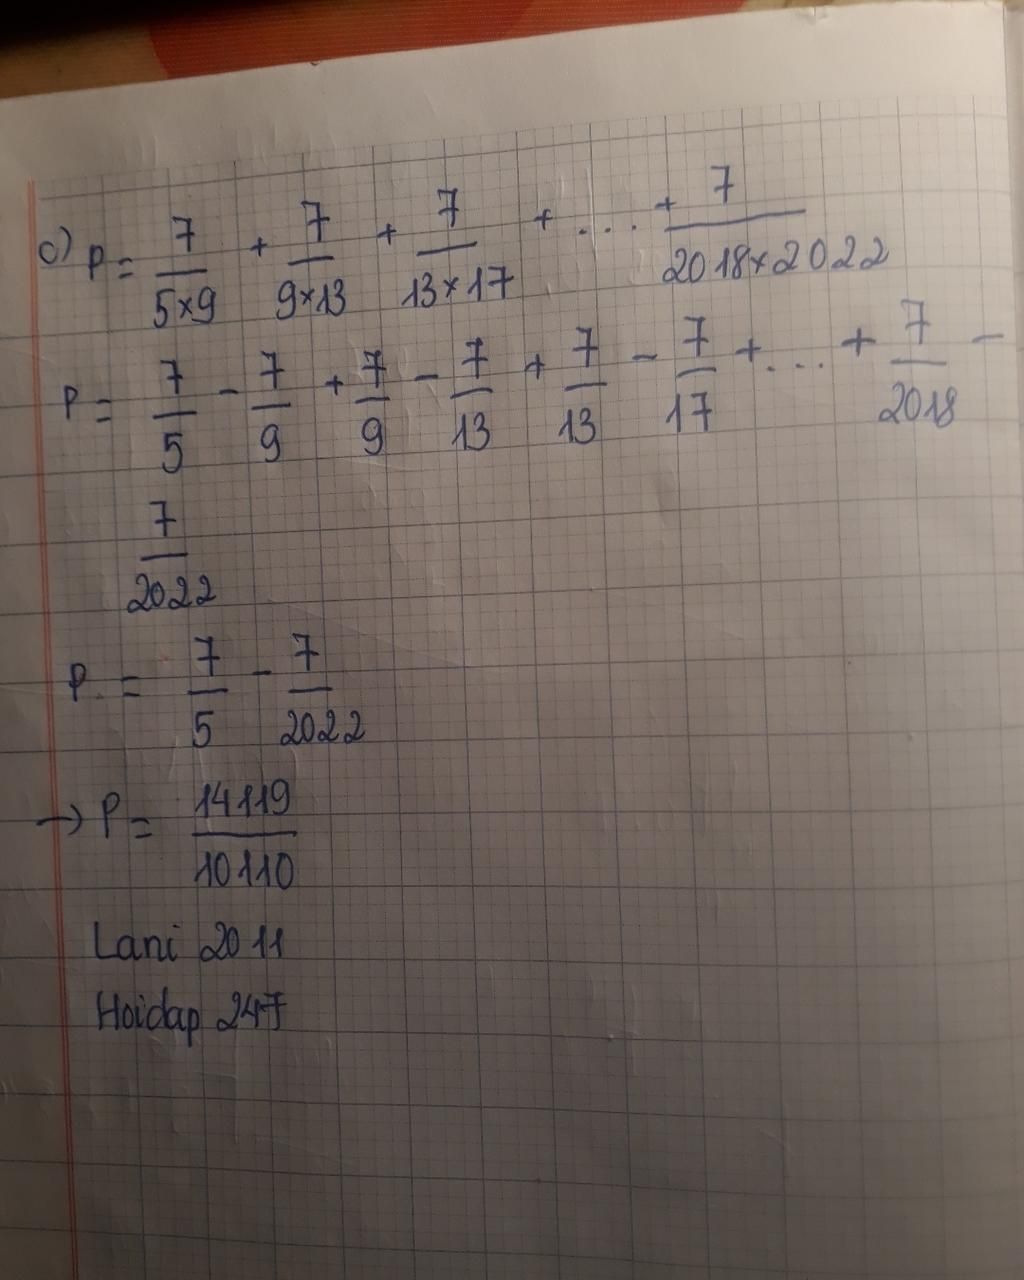 c) P = 7/5×9 + 7/9×13 + 7/13×17 + .... + 7/2018×2022
P = 7/5 - 7/9 + 7/9 - 7/13 + 7/13 - 7/17 + ... + 7/2018 -
7/2022
P = 7/5 - 7/2022
→ P = 14119/10110
Lani 2011
Hoidap 247